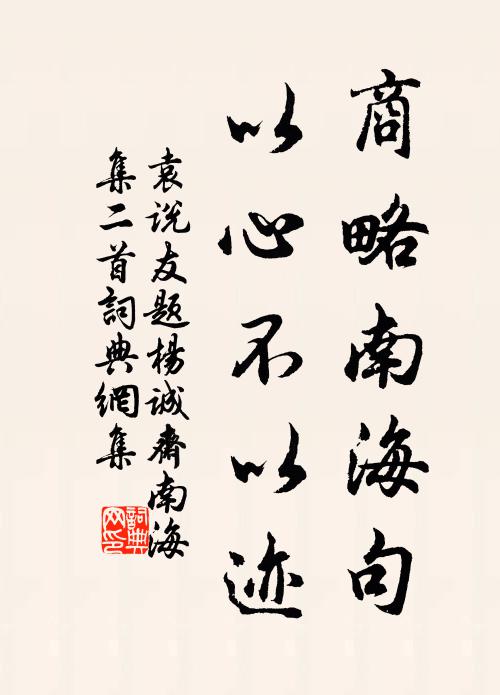 商略南海句
以心不以迹
袁说友题杨诚斋南海
集二首詞典網集
詞典
网印